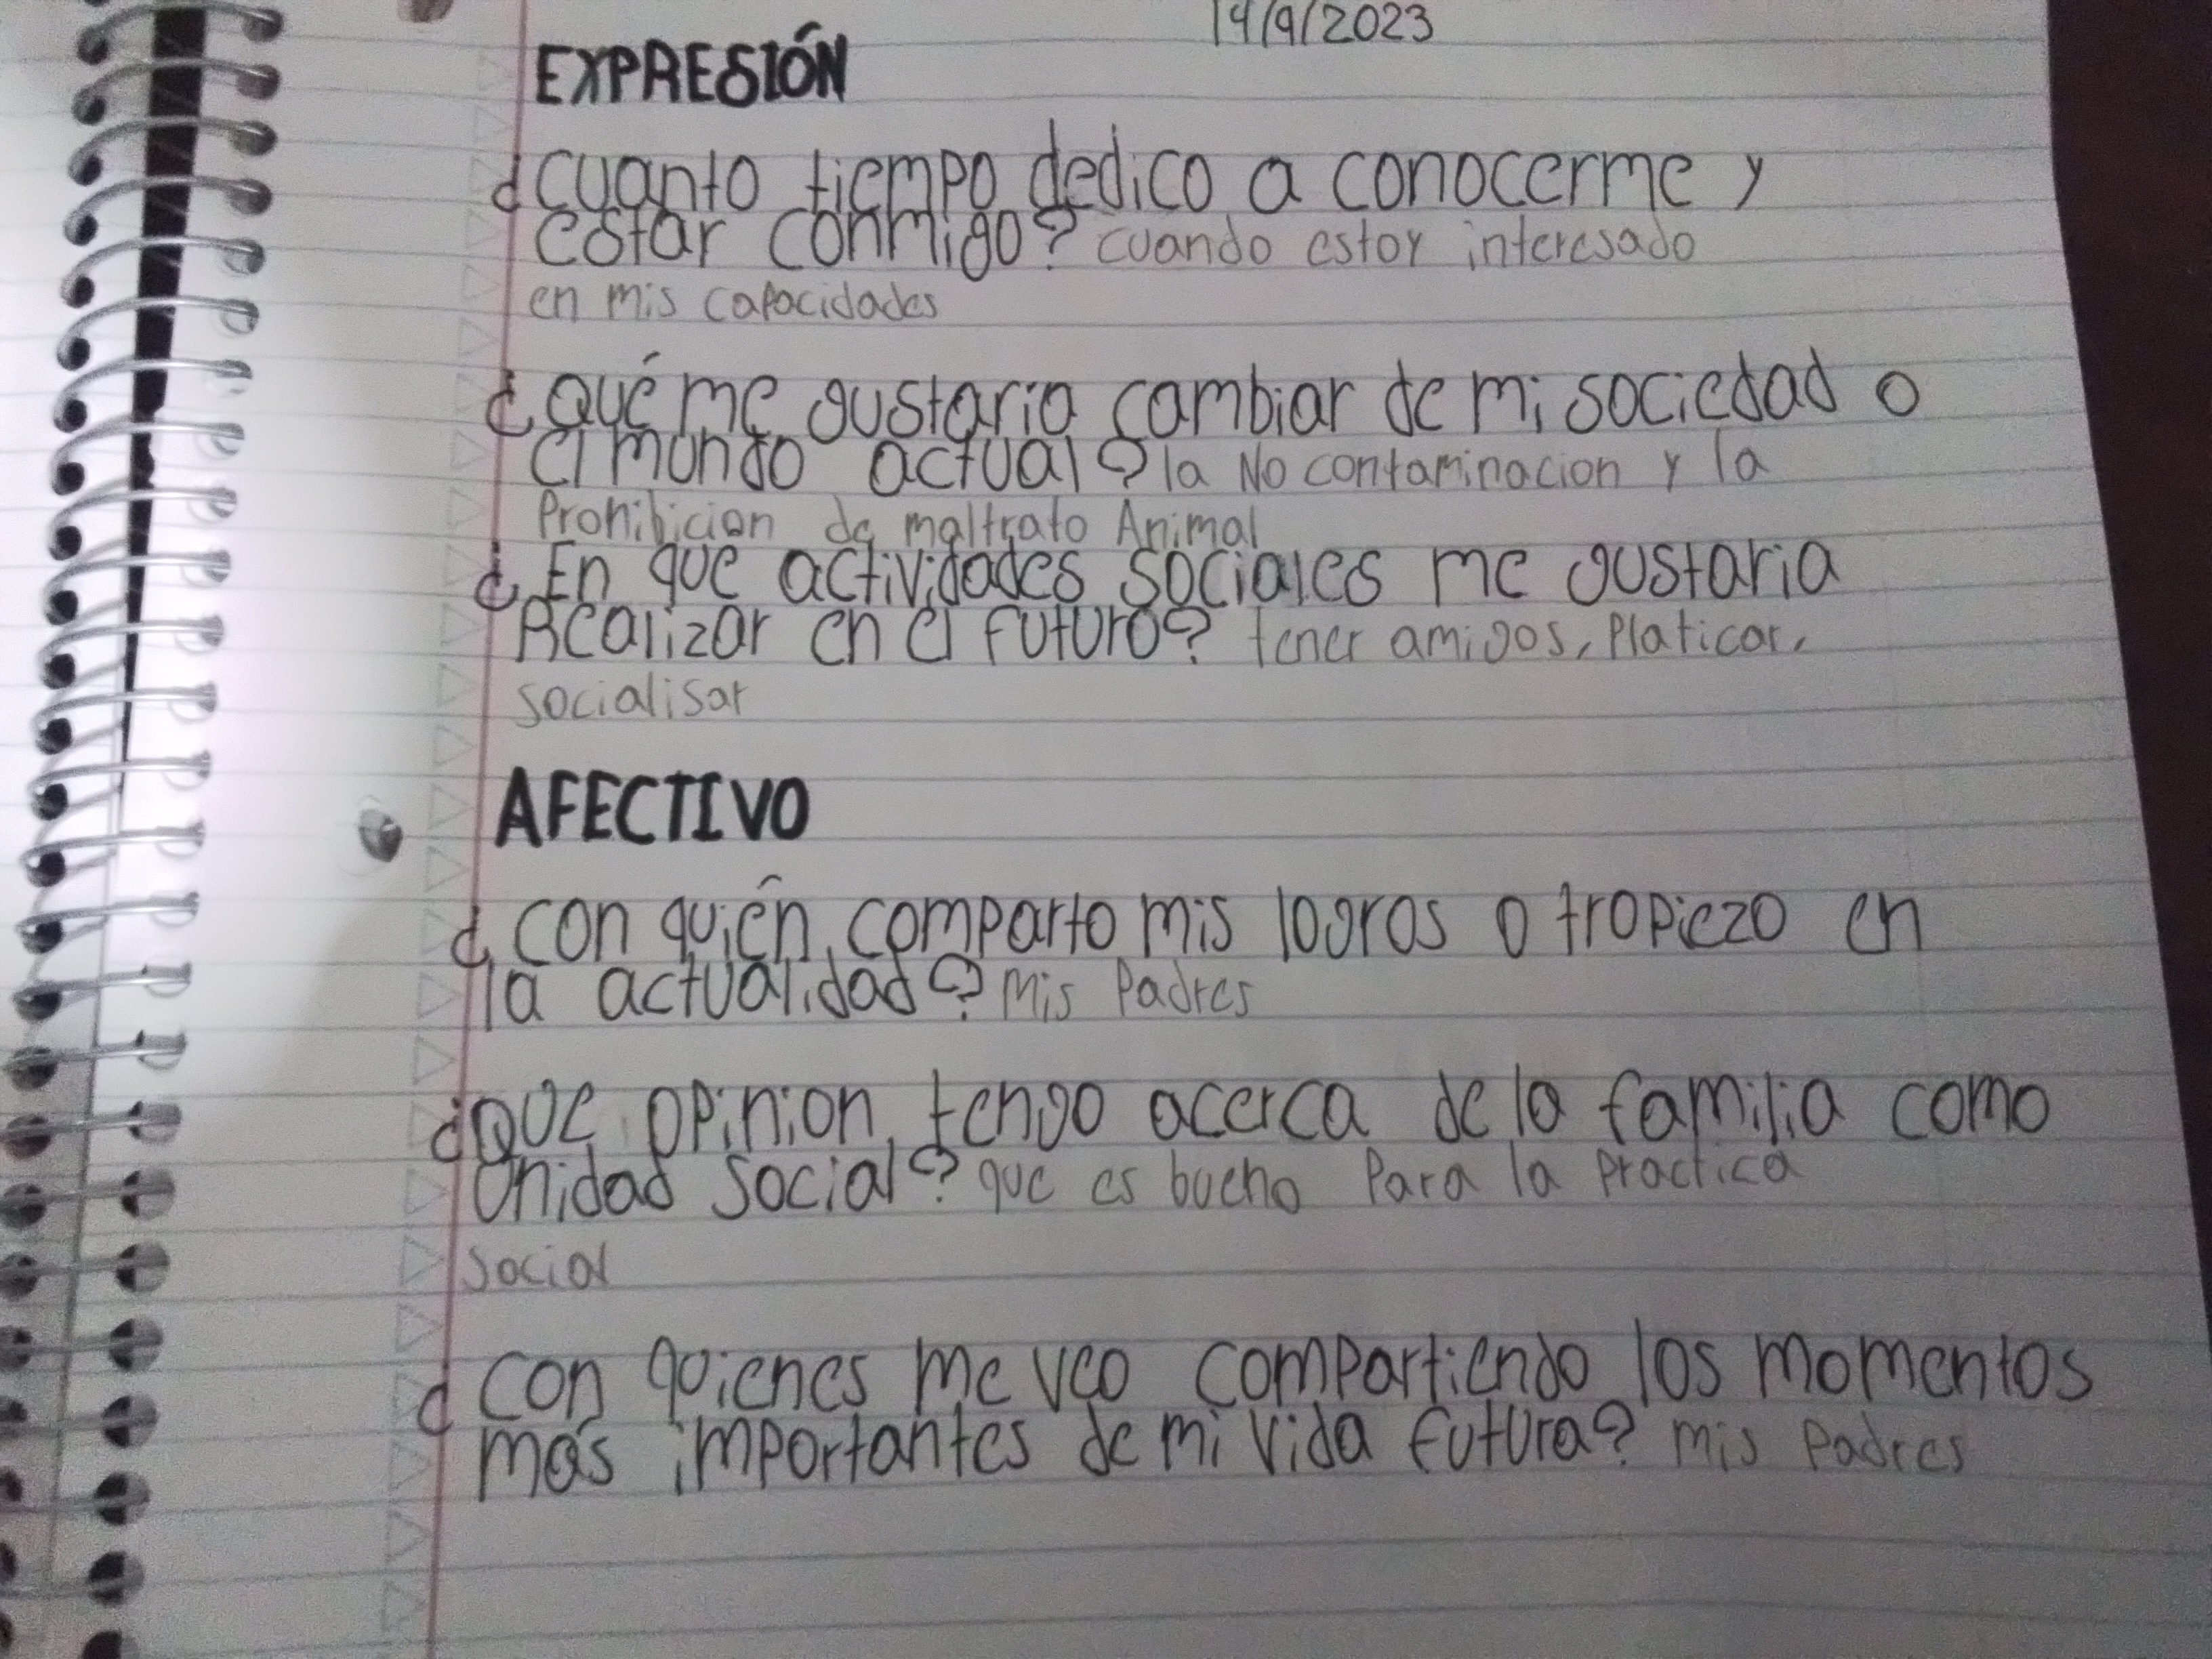 14/9/2023
EXPRESIÓN
¿cuanto tiempo dedico a conocerme y
estar conmigo? cuando estoy interesado
en mis capacidades
¿Qué me gustaria cambiar de mi sociedad o
el mundo actual? la No contaminacion y la
Prohibicion de maltrato Animal
¿En que actividades sociales me gustaria
Realizar en el futuro? tener amigos, Platicar,
socialisar
AFECTIVO
¿con quién comparto mis logros o tropiezo en
la actualidad? Mis Padres
¿Que opinion tengo acerca de la familia como
Unidad Social? que es bueno Para la Practica
Social
¿con quienes me veo compartiendo los momentos
más importantes de mi vida futura? mis Padres